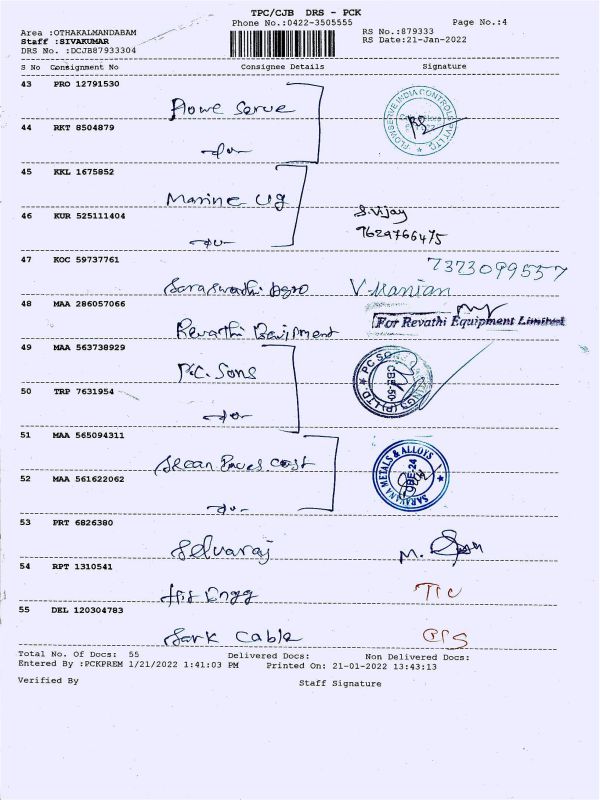 TPC/CJB DRS - PCK
Phone No.:0422-3505555
Page No.:4
Area :OTHAKALMANDABAM
Staff :SIVAKUMAR
DRS No. :DCJB87933304
RS No.:879333
RS Date:21-Jan-2022
S No Consignment No Consignee Details Signature
43 PRO 12791530
Flowe Serve
FLOWSERVE INDIA CONTROLS PVT LTD.
44 RKT 8504879
45 KKL 1675852
Marine
46 KUR 525111404
S.Vijay
7629766475
47 KOC 59737761
7373099557
Saraswathi Agro V.Manian
48 MAA 286057066
Revathi Equipment
For Revathi Equipment Limited
49 MAA 563738929
P.C. Sons
50 TRP 7631954
51 MAA 565094311
SARAVANA METALS & ALLOYS
CBE-24
52 MAA 561622062
53 PRT 6826380
Selvaraj M.
54 RPT 1310541
Engg
55 DEL 120304783
Sark Cable
Total No. Of Docs: 55 Delivered Docs: Non Delivered Docs:
Entered By :PCKPREM 1/21/2022 1:41:03 PM Printed On: 21-01-2022 13:43:13
Verified By Staff Signature